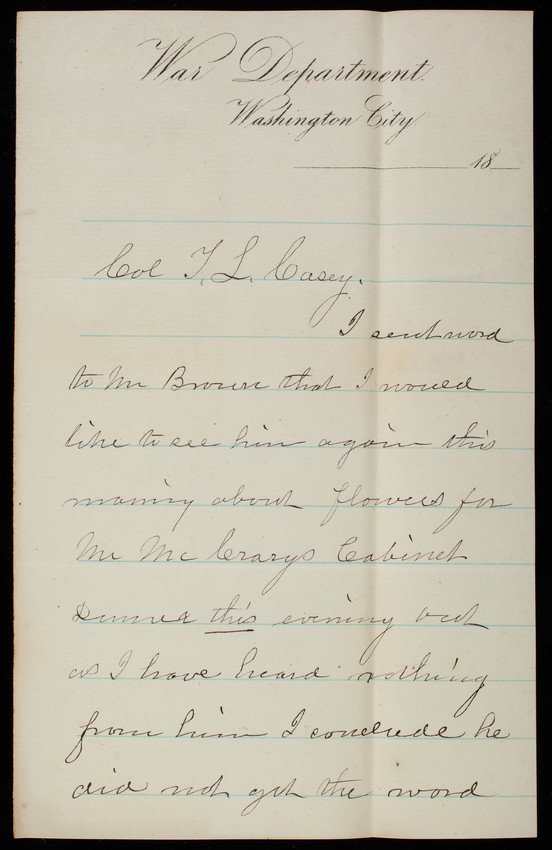 War Department.
Washington City.
18
Col T. L. Casey.
I sent word
to Mr Brown that I would
like to see him again this
morning about flowers for
Mr McCrarys Cabinet
dinner this evening but
as I have heard nothing
from him I conclude he
did not get the word